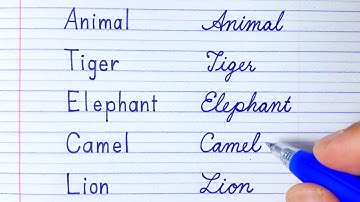 Animal Animal
Tiger Tiger
Elephant Elephant
Camel Camel
Lion Lion